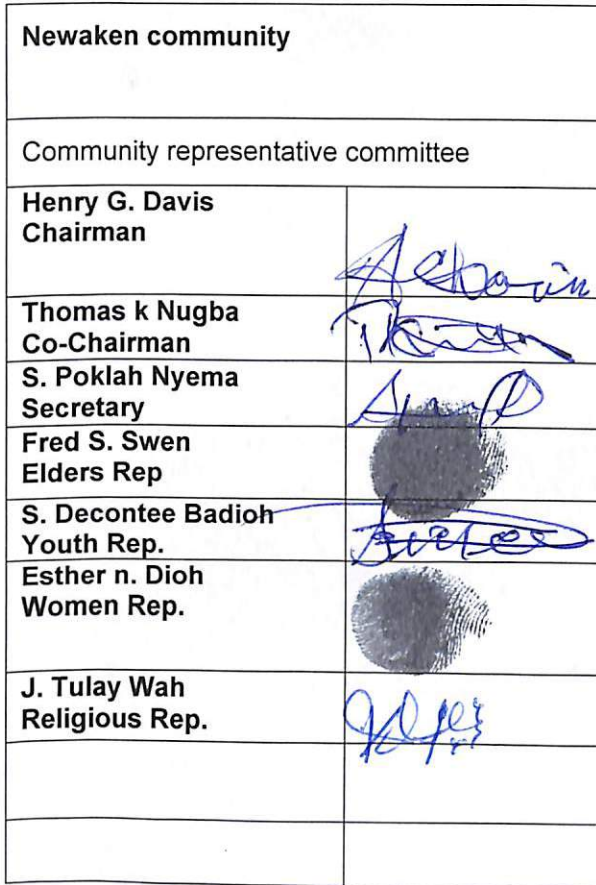 Newaken community
Community representative committee
Henry G. Davis
Chairman
Thomas k Nugba
Co-Chairman
S. Poklah Nyema
Secretary
Fred S. Swen
Elders Rep
S. Decontee Badioh
Youth Rep.
Esther n. Dioh
Women Rep.
J. Tulay Wah
Religious Rep.